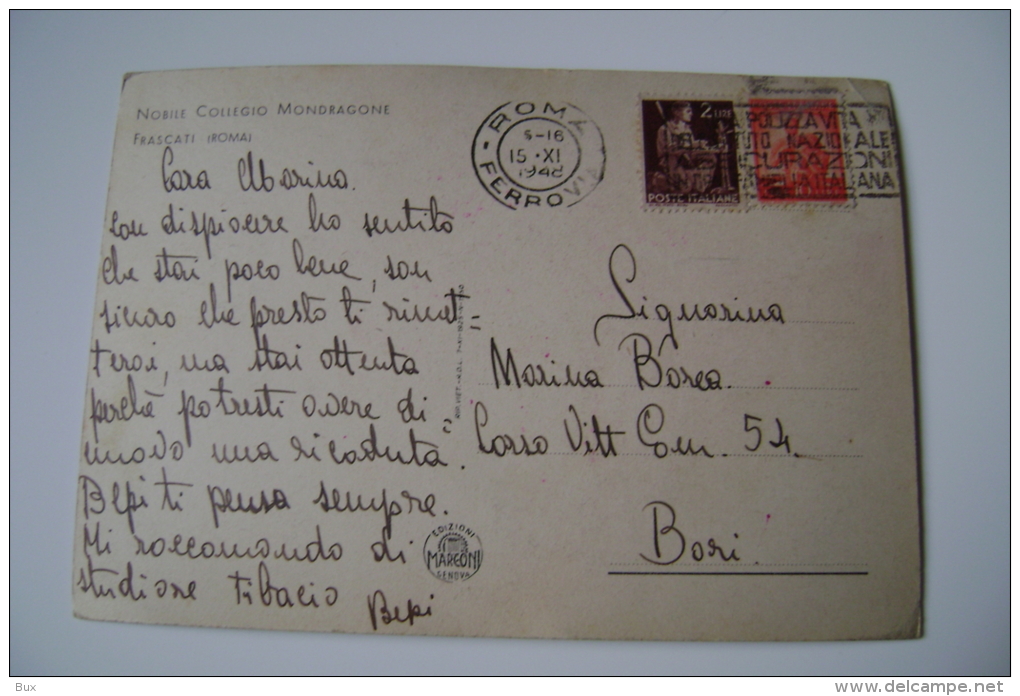 NOBILE COLLEGIO MONDRAGONE
FRASCATI (ROMA)
Cara Marina.
con dispiacere ho sentito
che stai poco bene, son
sicuro che presto ti rimet=
terai, ma stai attenta
perchè potresti avere di
nuovo una ricaduta.
Bepi ti pensa sempre.
Mi raccomando di
studiare ti bacio
Bepi
ROMA
15·XI
1948
FERROVIA
2 LIRE
POSTE ITALIANE
POLIZZA VITA
NAZIONALE
ITALIANA
Signorina
Marina Borea.
Corso Vitt Em. 54.
Bari.
EDIZIONI
MARCONI
GENOVA
Bux
www.delcampe.net